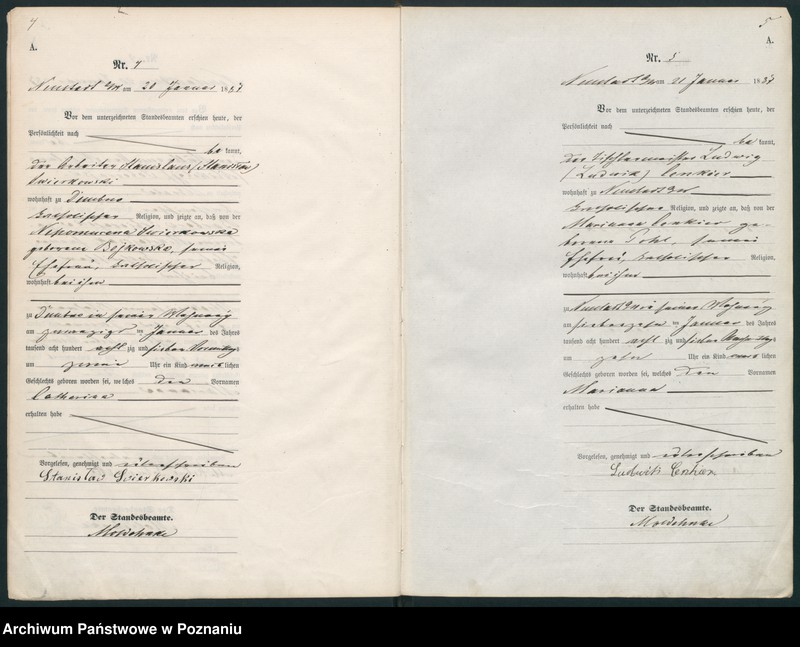 4
A.
Nr. 4
Neustadt a/W am 21 Januar 1887
Vor dem unterzeichneten Standesbeamten erschien heute, der
Persönlichkeit nach
be kannt,
der Arbeiter Stanislaus (Stanislaw)
Swierkowski
wohnhaft zu Dembno
katholischer Religion, und zeigte an, daß von der
Nepomucena Swierkowska
geborene Bojkowska, seiner
Ehefrau, katholischer Religion,
wohnhaft bei ihm
zu Dembno in seiner Wohnung
am zwanzigsten Januar des Jahres
tausend acht hundert achtzig und sieben Vormittags
um Uhr ein Kind weiblichen
Geschlechts geboren worden sei, welches den Vornamen
Catharina
erhalten habe
Vorgelesen, genehmigt und unterschrieben
Stanislaw Swierkowski
Der Standesbeamte.
5
A.
Nr. 5
Neustadt a/W am 21 Januar 1887
Vor dem unterzeichneten Standesbeamten erschien heute, der
Persönlichkeit nach
be kannt,
der Tischlermeister Ludwig
(Ludwik)
wohnhaft zu Neustadt a/W
katholischer Religion, und zeigte an, daß von der
Marianna ge-
borene Pohl, seiner
Ehefrau, katholischer Religion,
wohnhaft bei ihm
zu Neustadt a/W in seiner Wohnung
am siebzehn ten Januar des Jahres
tausend acht hundert achtzig und sieben
um zehn Uhr ein Kind weiblichen
Geschlechts geboren worden sei, welches den Vornamen
Marianna
erhalten habe
Vorgelesen, genehmigt und unterschrieben
Ludwik
Der Standesbeamte.
Archiwum Państwowe w Poznaniu